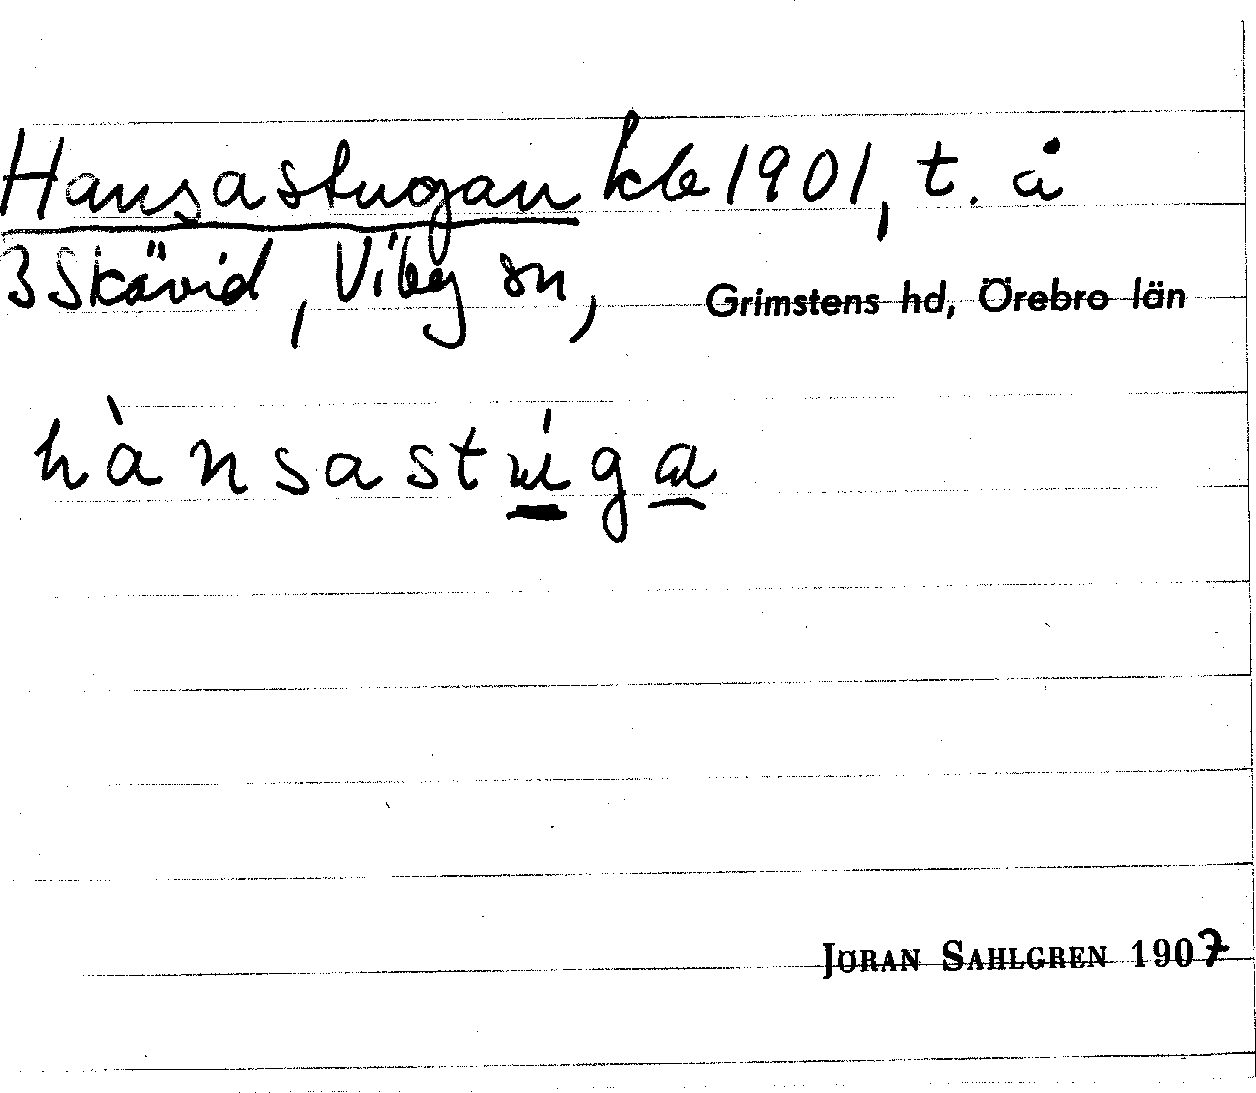 Hansastugan kb 1901, t. å
3 Skävid, Viby sn, Grimstens hd, Örebro län
hànsastúga
JÖRAN SAHLGREN 1907